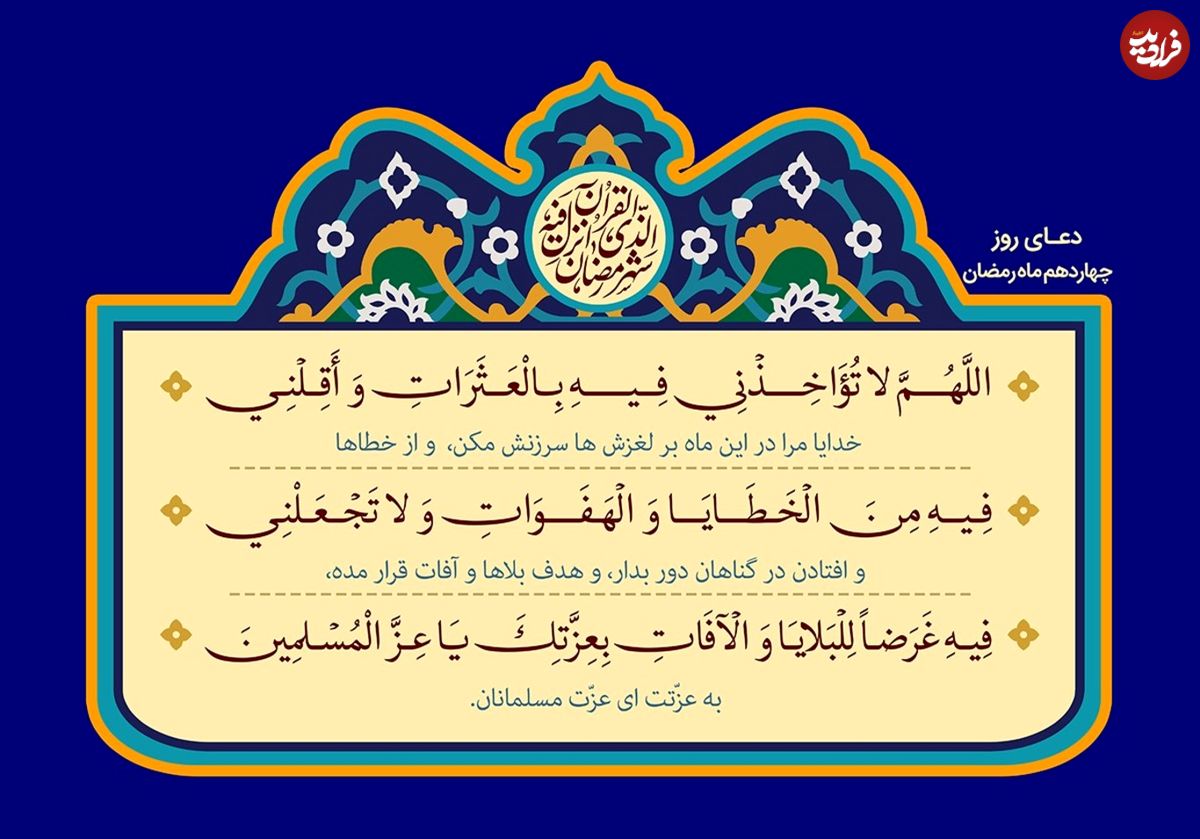 فرادید
شهر رمضان الذی انزل فیه القرآن
دعـای روز
چهاردهم ماه رمضان
اللَّهُمَّ لا تُؤَاخِذْنِي فِيهِ بِالْعَثَرَاتِ وَ أَقِلْنِي
خدایا مرا در این ماه بر لغزش ها سرزنش مکن، و از خطاها
فِيهِ مِنَ الْخَطَايَا وَ الْهَفَوَاتِ وَ لا تَجْعَلْنِي
و افتادن در گناهان دور بدار، و هدف بلاها و آفات قرار مده،
فِيهِ غَرَضاً لِلْبَلايَا وَ الْآفَاتِ بِعِزَّتِكَ يَا عِزَّ الْمُسْلِمِينَ
به عزّتت ای عزّت مسلمانان.